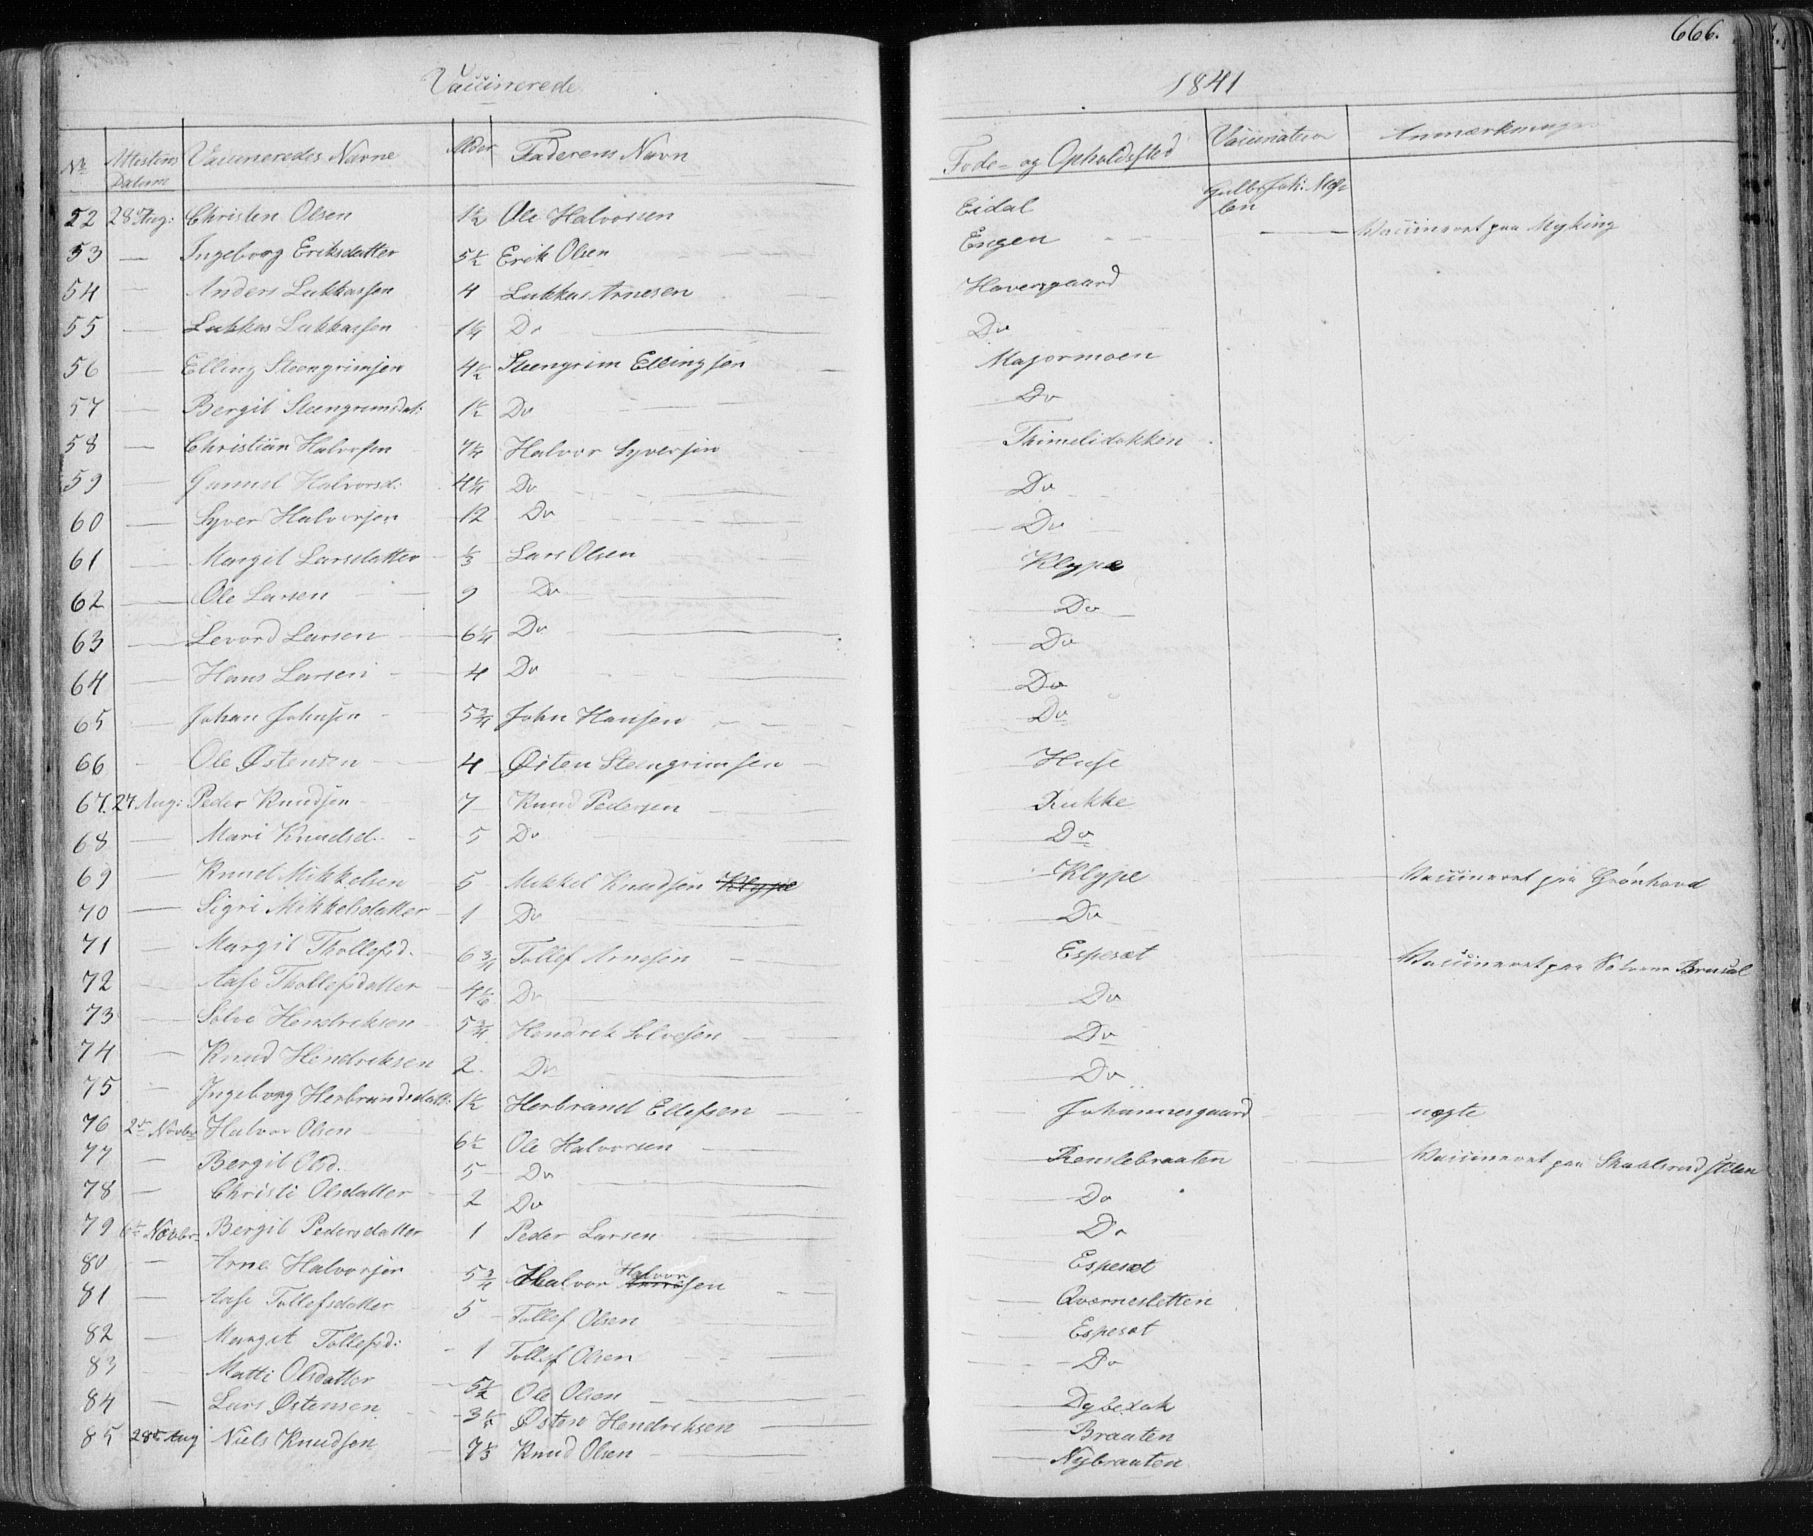 666.
Vaccinerede 1841
No Attestens Datum Vaccineredes Navne Alder Faderens Navn Føde- og Opholdssted Vaccinateur Anmærkninger
52 28 Aug: Christen Olsen 1½ Ole Halvorsen Eidal
53 — Ingeborg Eriksdatter 5½ Erik Olsen Engen — Vaccineret paa Myking
54 — Anders Lukkassen 4 Lukkas Arnesen Haversgaard
55 — Lukkas Lukkassen 1¼ Do Do
56 — Elling Steengrimsen 4½ Steengrim Ellingsen Majormoen
57 — Bergit Steengrimsdat: 1½ Do Do
58 — Christian Halvorsen 7¼ Halvor Syversen Trimelidokken
59 — Gunnel Halvorsd: 4¼ Do Do
60 — Syver Halvorsen 12 Do Do
61 — Margit Larsdatter ⅓ Lars Olsen Klype
62 — Ole Larsen 9 Do Do
63 — Levord Larsen 6¼ Do Do
64 — Hans Larsen 4 Do Do
65 — Johan Johnsen 5¾ John Hansen Do
66 - Ole Østensen 4 Østen Steengrimsen Huse
67. 27 Aug: Peder Knudsen 7 Knud Pedersen Rukke
68 — Mari Knudsd. 5 Do Do
69 — Knud Mikkelsen 5 Mikkel Knudsen Klype Klype Vaccineret paa Grønhovd
70 — Sigri Mikkelsdatter 1 Do Do
71 — Margit Thollefsd. 6¾ Tollef Arnesen Espeset Vaccineret paa
72 — Aase Thollefsdatter 4⅙ Do Do
73 — Solve Hendriksen 5¾ Hendrik Solvesen Do
74 — Knud Hendriksen 2. Do Do
75 — Ingeborg Herbrandsdatt: 1½ Herbrand Ellefsen Johannesgaard nægte
76 2de Novbr Halvor Olsen 6½ Ole Halvorsen Renslebraaten Vaccineret paa
77 — Bergit Olsd. 5 Do Do
78 — Christi Olsdatter 2 Do Do
79 6te Novbr Bergit Pedersdatter 1 Peder Larsen Espeset
80 — Arne Halvorsen 5¾ Halvor Halvorsen Qværnesletten
81 — Aase Tollefsdatter 5 Tollef Olsen Espeset
82 — Margit Tollefsd: 1 Tollef Olsen Do
83 — Matti Olsdatter 5½ Ole Olsen Dybedok
84 — Lars Østensen Østen Hendriksen Braaten
85 28de Aug Niels Knudsen 7⅓ Knud Olsen Nybraaten